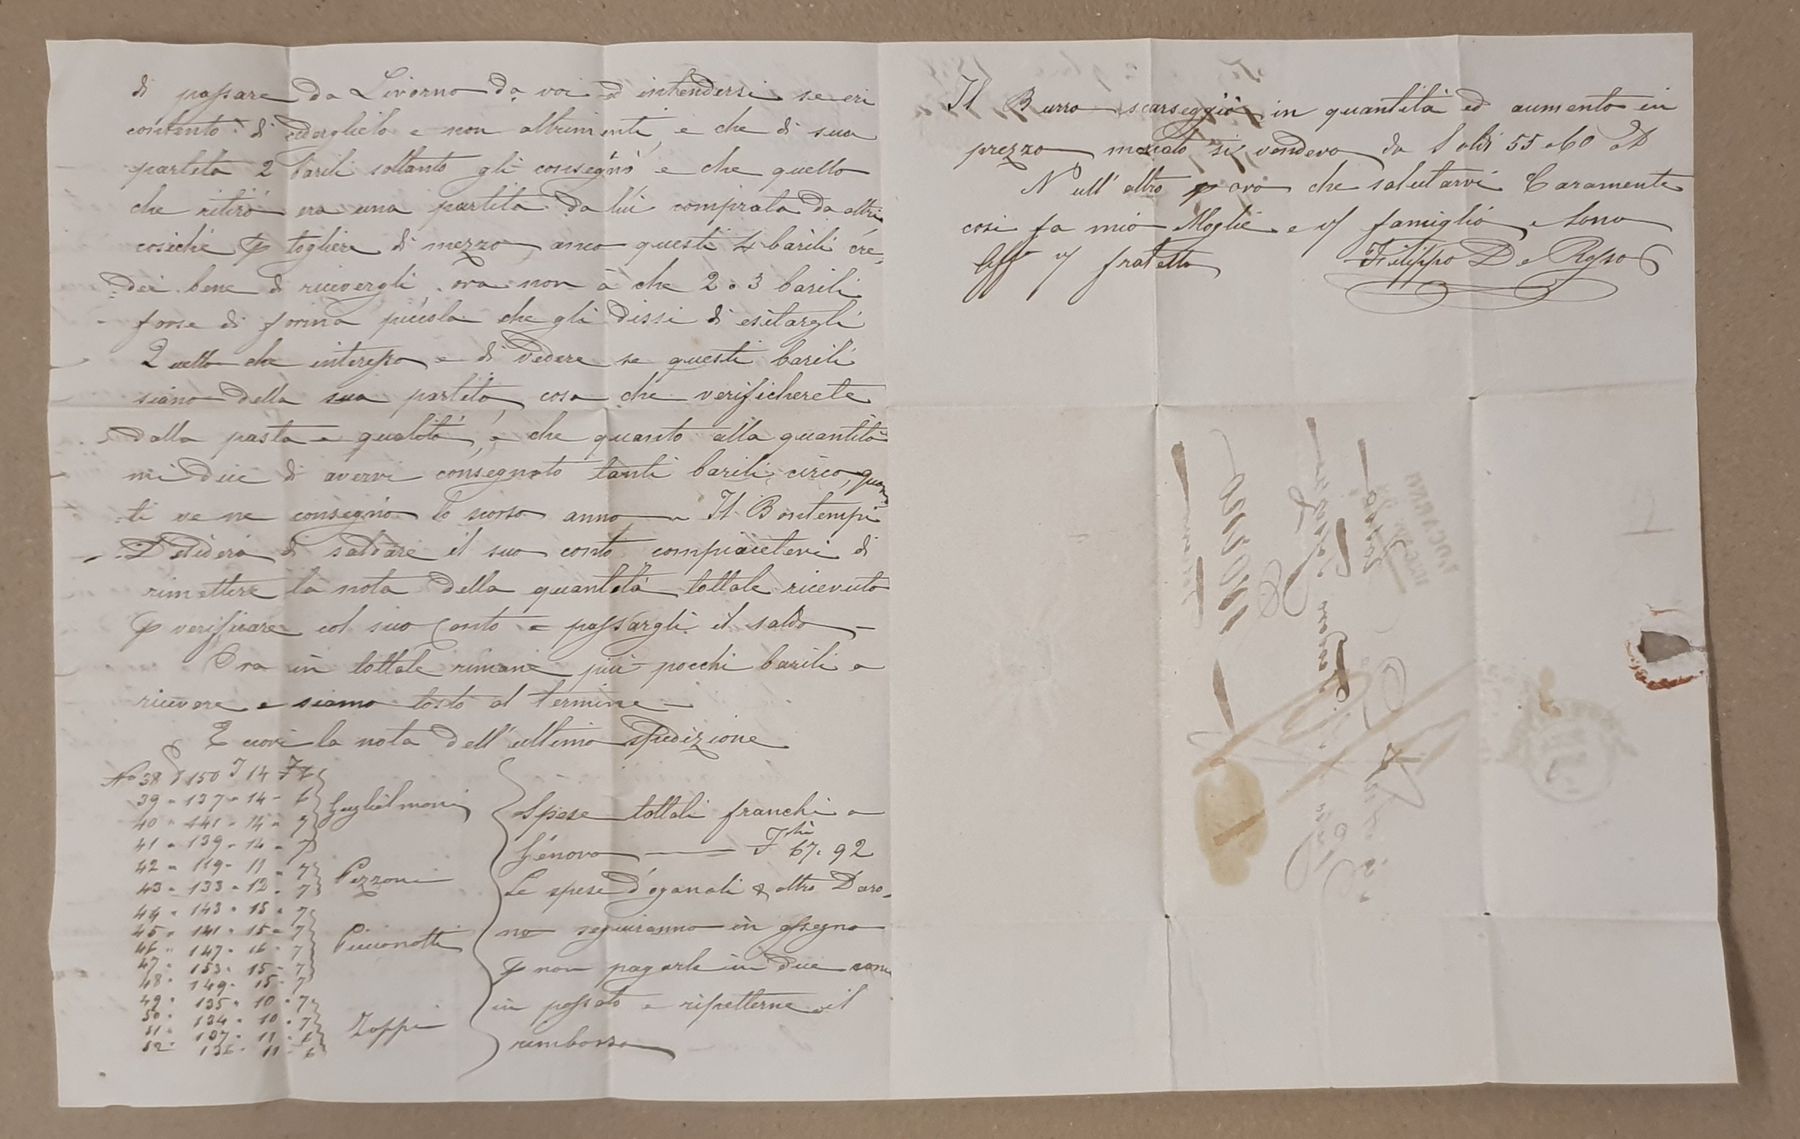 di passare da Livorno da voi ed intendersi se eri
contento di cederglielo e non altrimenti, e che di sua
partita 2 barili soltanto gli consegnò e che quello
che ritirò era una partita da lui comprata da altri
cosiché p togliere di mezzo anco questi 4 barili cre,
dei bene di ricevergli. ora non à che 2 o 3 barili
forse di forma picola che gli dissi di esitargli
Quello che interessa e di vedere se questi barili
siano della sua partita, cosa che verificherete
dalla pasta e qualità, e che quanto alla quantità
mi dice di avervi consegnato tanti barili circa, quan
ti ve ne consegnò lo scorso anno - Il Bontempi
Desidera di saldare il suo conto compiacetevi di
rimettere la nota della quantità tottale ricevuta
p verificare col suo Conto e passargli il saldo -
Ora in tottale rimane più pocchi barili a
ricevere e siamo tosto al termine -
Eccovi la nota dell'ultima spedizione
No 38 150 T 14
39 - 137 - 14 - 6
40 - 141 - 14 - 7
Guglielmoni
41 - 139 - 14 - 7
42 - 119 - 11 - 7
43 - 133 - 12 - 7
Pezzoni
44 - 143 - 15 - 7
45 - 141 - 15 - 7
46 - 147 - 16 - 7
Piccionotti
47 - 153 - 15 - 7
48 - 149 - 15 - 7
49 - 135 - 10 - 7
50 - 134 - 10 - 7
51 - 137 - 11 - 6
52 - 136 - 11 - 6
Zoppi
Spese tottali franchi a
Génova — Fchi 67. 92
Le spese d'oganali & altro Dara,
no seguiranno in assegno
p non pagarle in due come
in passato e rispetterne il
rimborso
Il Burro scarseggiò in quantità ed aumento in
prezzo mercato si vendeva da Soldi 55 a 60
Null' altro p ora che salutarvi Caramente
cosi fa mio Moglie e famiglia e sono
Aff fratello Filippo De Rosso